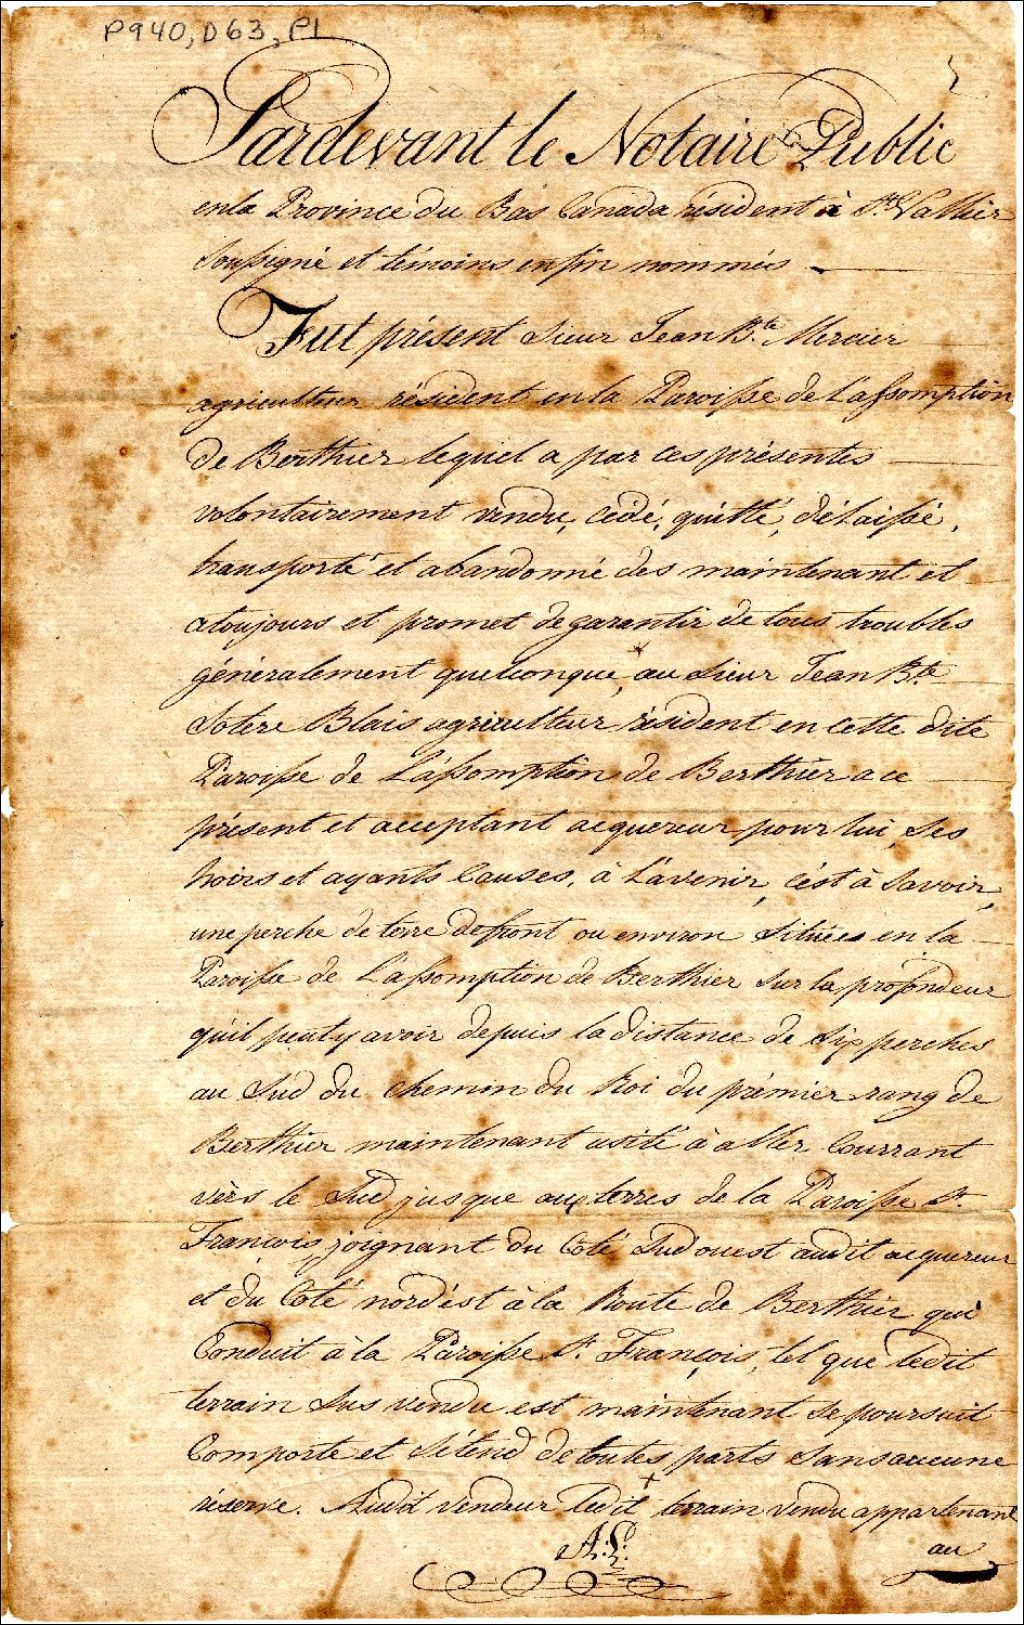 P940, D63, P1
Pardevant le Notaire Public
en la Province du Bas Canada résident à St. Vallier
Soussigné et témoins enfin nommés
Fut présent Sieur Jean Bte. Mercier
agriculteur résident en la Paroisse de L'assomption
de Berthier lequel a par ces présentes
volontairement vendu, cédé, quitté, délaissé,
transporté et abandonné dès maintenant et
atoujours et promet de garantir de tous troubles
généralement quelconque, au Sieur Jean Bte
Sotere Blais agriculteur résident en cette dite
Paroisse de L'assomption de Berthier a ce
présent et acceptant acquereur pour lui, Ses
hoirs et ayants Causes, à L'avenir, c'ést à Savoir,
une perche de térre de front ou environ Situées en la
Paroisse de L'assomption de Berthier Sur la profondeur
qu'il peut y avoir depuis la distance de Six perches
au Sud du chemin du Roi du prémier rang de
Berthier maintenant usité à aller Courrant
vèrs le Sud jusque aux terres de la Paroisse St.
François, joignant du Coté Sud ouest audit acquereur
et du Coté nord'ést à la Route de Berthier qui
Conduit à la Paroisse St. François, tel que ledit
terrain Sus vendu est maintenant se poursuit
Comporte et S'étend de toutes parts Sans aucune
réserve. Audit vendeur ledit terrain vendu appartenant
A: L:
au